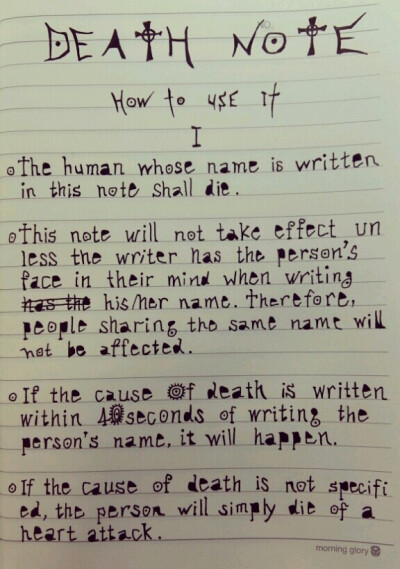 DEATH NOTE
How to use it
I
The human whose name is written
in this note shall die.
This note will not take effect un
less the writer has the person's
face in their mind when writing
has the his/her name. Therefore,
people sharing the same name will
not be affected.
If the cause of death is written
within 40seconds of writing the
person's name, it will happen.
If the cause of death is not specifi
ed, the person will simply die of a
heart attack.
morning glory